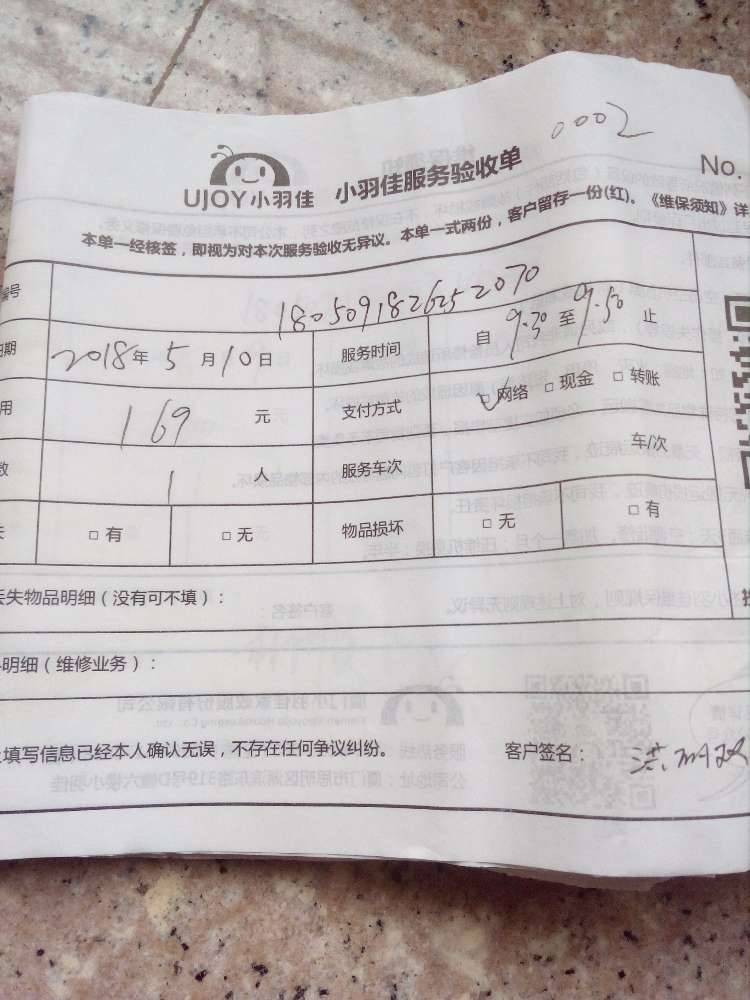 0002
No.
UJOY小羽佳 小羽佳服务验收单
本单一经核签，即视为对本次服务验收无异议。本单一式两份，客户留存一份(红)。《维保须知》详
编号 1805091826252070
日期 2018年5月10日 服务时间 自 9.30 至 9.50 止
用 169 元 支付方式 ✓□网络 □现金 □转账
数 1 人 服务车次 车/次
□有 □无 物品损坏 □无 □有
丢失物品明细（没有可不填）：
明细（维修业务）：
填写信息已经本人确认无误，不存在任何争议纠纷。 客户签名： 洪